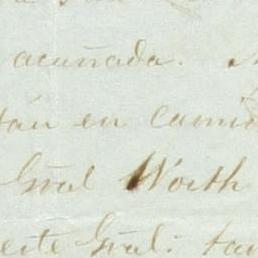 acuñada.
tán en camin
Gral Worth
este Gral: tan